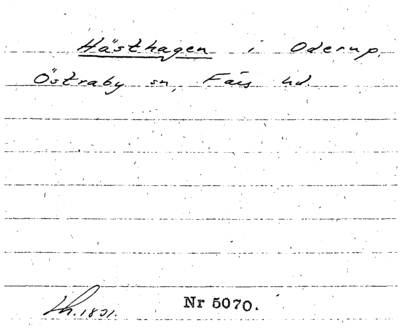 Hästhagen i Oderup.
Östraby sn, Färs hd.
Lh. 1831. Nr 5070.